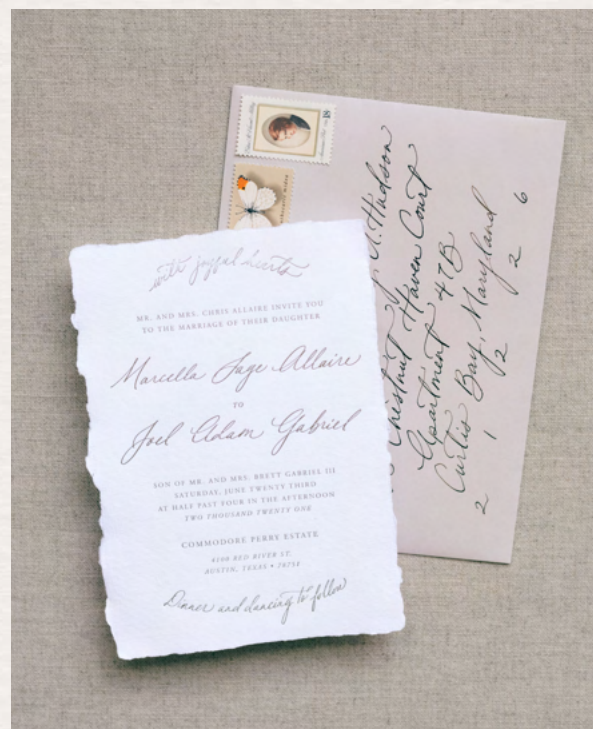 with joyful hearts
MR. AND MRS. CHRIS ALLAIRE INVITE YOU
TO THE MARRIAGE OF THEIR DAUGHTER
Marcella Sage Allaire
TO
Joel Adam Gabriel
SON OF MR. AND MRS. BRETT GABRIEL III
SATURDAY, JUNE TWENTY THIRD
AT HALF PAST FOUR IN THE AFTERNOON
TWO THOUSAND TWENTY ONE
COMMODORE PERRY ESTATE
4100 RED RIVER ST.
AUSTIN, TEXAS • 78751
Dinner and dancing to follow
Hudson
Chestnut Haven Court
Apartment 47B
Curtis Bay, Maryland
2 1 2 2 6
18